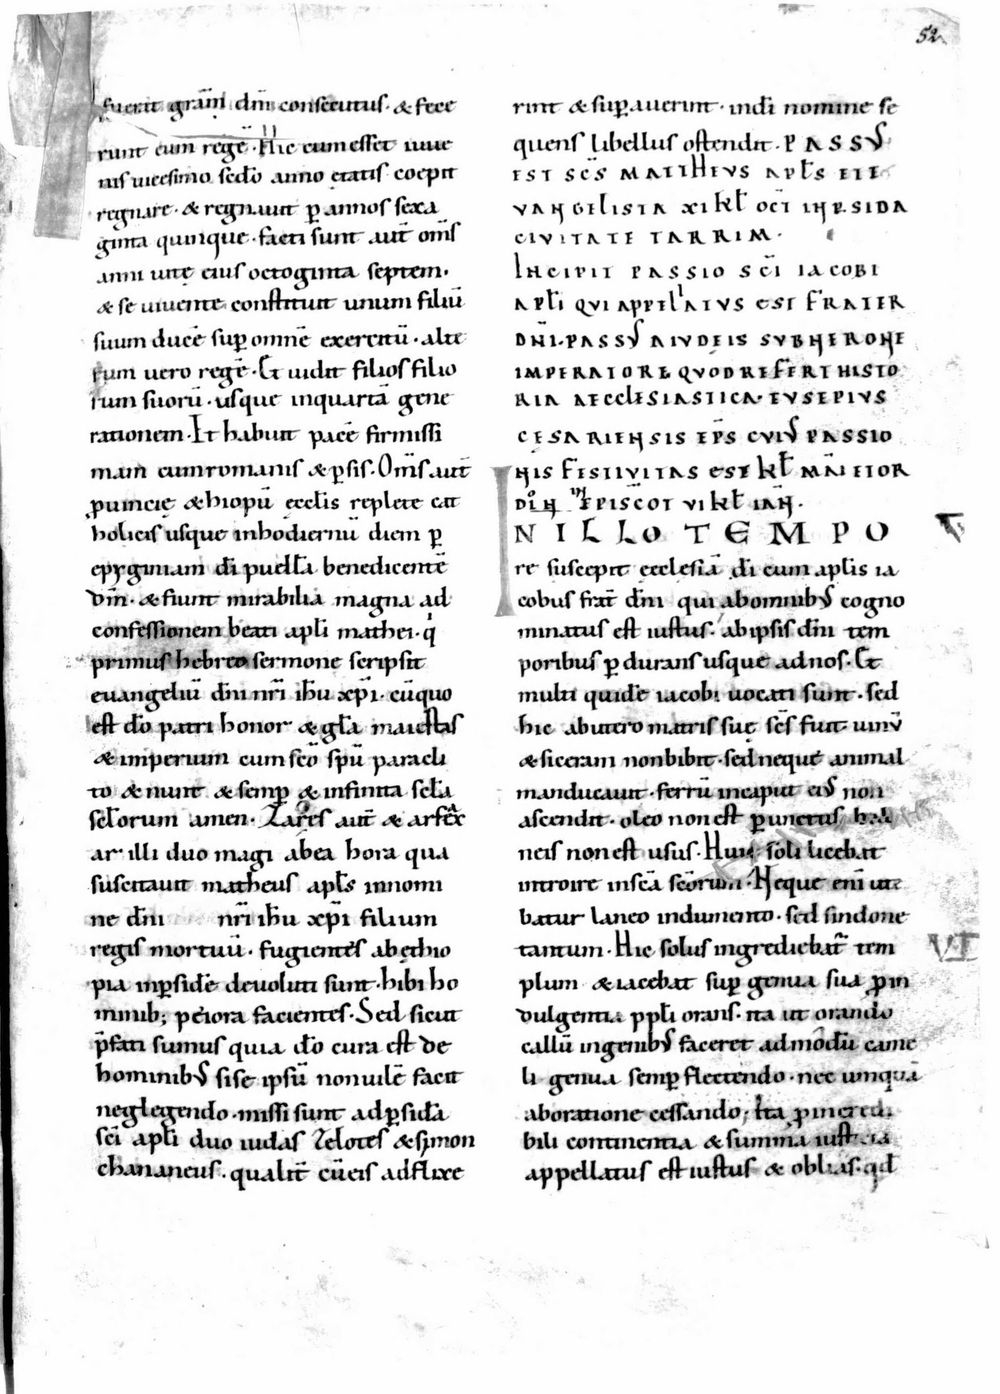 52
fuerit gram̅ dn̅i consecutus · & fece
runt eum rege̅ · Hic cum esset iuue
nis uicesimo sed̅o anno ętatis coepit
regnare · & regnauit p̲ annos sexa
ginta quinque · facti sunt aut̅ om̅s
anni uitę eius octoginta septem ·
& se uiuente constituit unum filiu̅
suum duce̅ sup̲ omne̅ exercitu̅ · alte
rum uero rege̅ · Et uidit filios filio
rum suoru̅ · usque in quarta̅ gene
rationem · Et habuit pace̅ firmissi
mam cum romanis & p̲sis · Om̅s aut̅
puincię &hiopu̅ ecclis replete cat
holicis usque in hodiernu̅ diem p̲
epyginiam d̅i puella̅ benedicente̅
dn̅m · & fiunt mirabilia magna ad
confessionem beati apl̅i mathei · q̅
primus hebreo sermone scripsit
euangeliu̅ dn̅i nr̅i ih̅u xp̅i · cu̅quo
est d̅o patri honor & gl̅a maiestas
& imperium cum sc̅o sp̅u paracli
to & nunc & semp̲ & infinita sc̅la
scl̅orum amen · Zares aut̅ & arfax
ar · illi duo magi ab ea hora qua
suscitauit matheus apl̅s in nomi
ne dn̅i nr̅i ih̅u xp̅i filium
regis mortuu̅ · fugientes ab ęthio
pia in p̲side̅ deuoluti sunt · hibi ho
minib; peiora facientes · Sed sicut
p̅fati sumus quia d̅o cura est de
hominibus si se ipsu̅ non uile̅ facit
neglegendo · missi sunt ad p̲sida̅
sc̅i apl̅i duo iudas Zelotes & symon
chananeus · qualit̅ cu̅ eis adflixe
rint & sup̲auerint · in d̅i nomine se
quens libellus ostendit · PASSUS
EST SC̅S MATTHEVS APL̅S ETE
VANGELISTA XI KL̅ OCT̅ IN P̲SIDA
CIVITATE TARRIM ·
INCIPIT PASSIO SC̅I IACOBI
APL̅I QUI APPELLATVS EST FRATER
DN̅I · PASSUS A IVDEIS SVB NERONE
IMPERATORE QVOD REFERT HISTO
RIA AECCLESIASTICA · EVSEPIVS
CESARIENSIS EP̅S CVIUS PASSIO
NIS FESTIVITAS EST KL̅ MAI̅ ET OR
DIN EPISCOT VI KL̅ IAN̅ ·
IN ILLO TEMPO
re suscepit ecclesia̅ d̅i cum aplis ia
cobus frat̅ dn̅i qui ab omnibus cogno
minatus est iustus · ab ipsis dn̅i tem
poribus p̲durans usque ad nos · Et
multi quide̅ iacobi uocati sunt · sed
hic ab utero matris suę sc̅s fuit · uinu̅
& siceram non bibit · sed neque animal
manducauit · ferru̅ in caput eius non
ascendit · oleo non est p̲unctus, bal
neis non est usus · Huic soli licebat
introire in sc̅a sc̅orum · Neque eni̅ ute
batur laneo indumento · sed sindone
tantum · Hic solus ingrediebat̅ tem
plum & iacebat sup̲ genua sua p̲ in
dulgentia pp̅li orans · ita ut orando
callu̅ in genibus faceret ad modu̅ came
li genua semp̲ flectendo · nec umqua̅
ab oratione cessando; Ita p̲ incredi
bili continentia & summa iusticia
appellatus est iustus & oblias · qd̅
VI